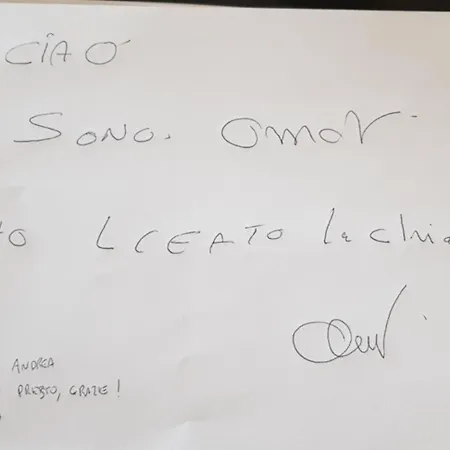 CIAÓ
SONO. Omar.
LCEATO la chia
ANDREA
PRESTO, GRAZIE!